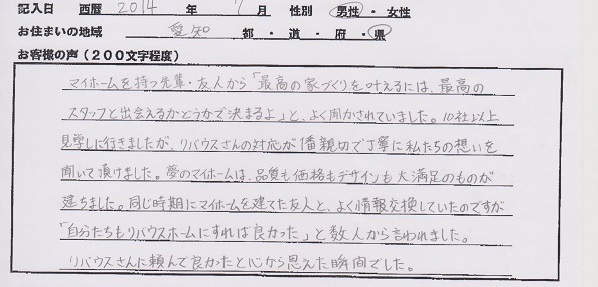 記入日 西暦 2014 年 7 月 性別 男性・女性
お住まいの地域 愛知 都・道・府・県
お客様の声（200文字程度）
マイホームを持つ先輩・友人から「最高の家づくりを叶えるには、最高の
スタッフと出会えるかどうかで決まるよ」と、よく聞かされていました。10社以上
見学しに行きましたが、リバウスさんの対応が1番親切で丁寧に私たちの想いを
聞いて頂けました。夢のマイホームは、品質も価格もデザインも大満足のものが
建ちました。同じ時期にマイホームを建てた友人と、よく情報交換していたのですが
「自分たちもリバウスホームにすれば良かった」と数人から言われました。
リバウスさんに頼んで良かったと心から思えた瞬間でした。